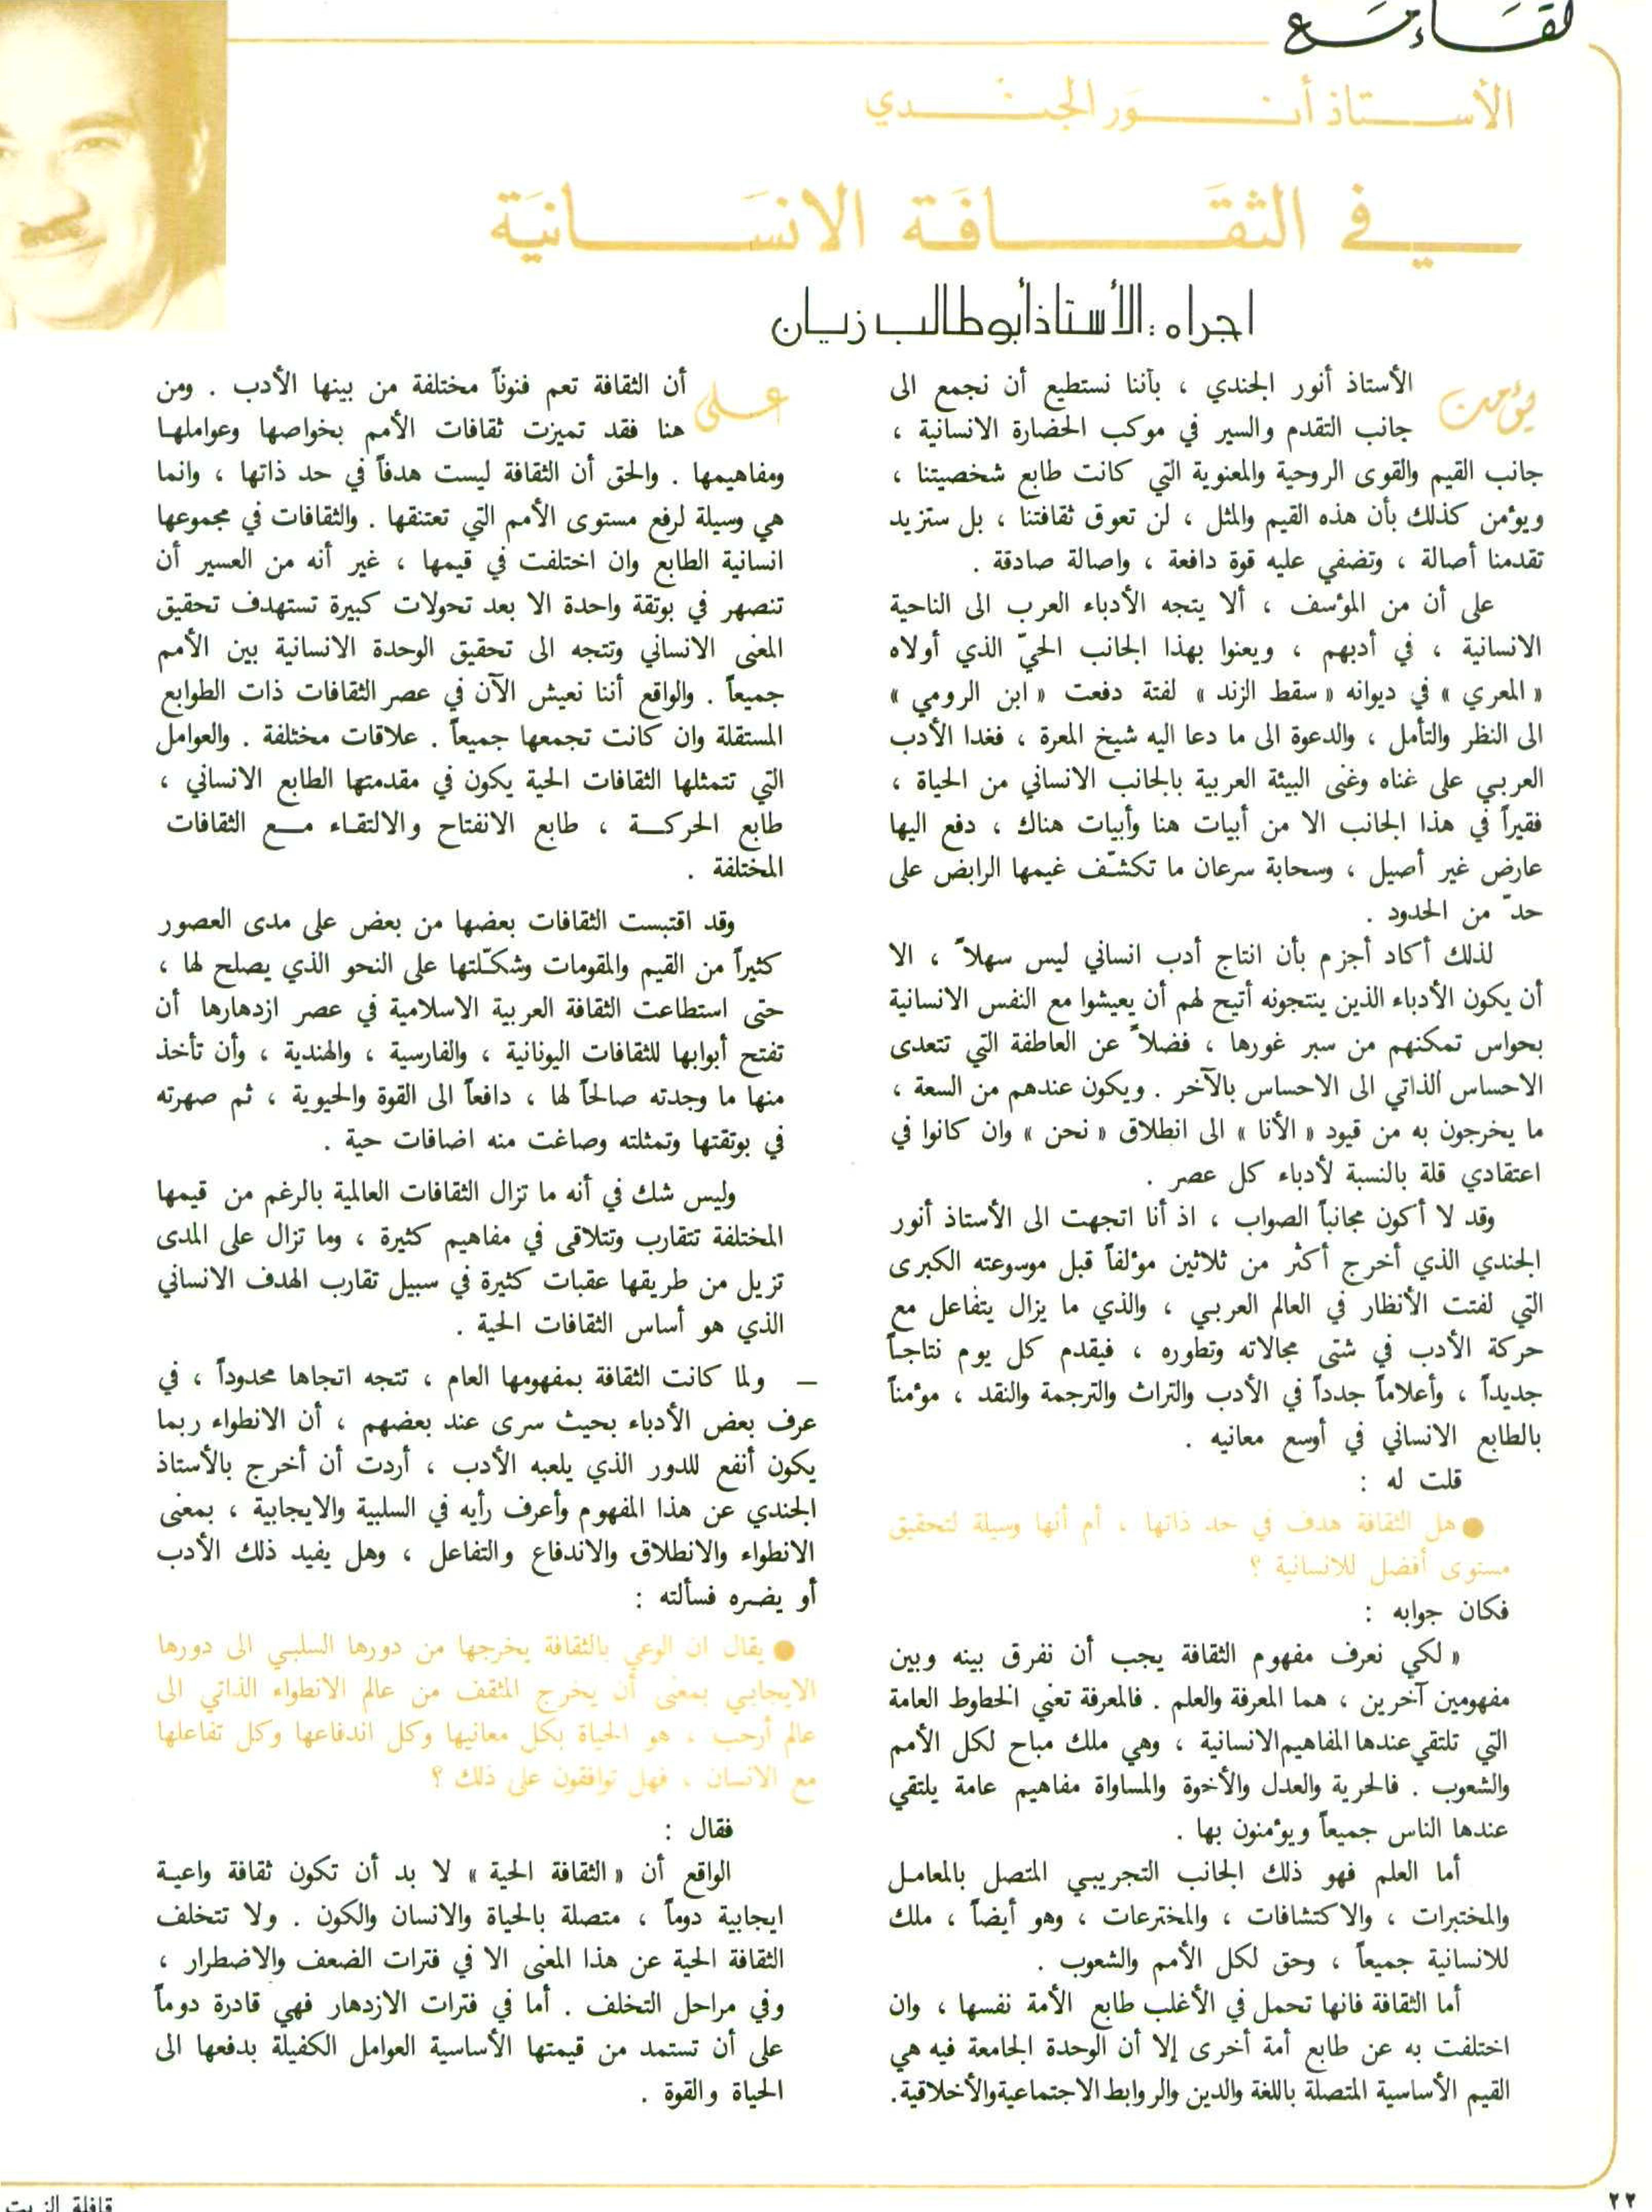 لقاء مع
الأستاذ أنور الجندي
في الثقافة الانسانية
اجراه : الأستاذ أبو طالب زيان
يؤمن الأستاذ أنور الجندي ، بأننا نستطيع أن نجمع الى
جانب التقدم والسير في موكب الحضارة الانسانية ،
جانب القيم والقوى الروحية والمعنوية التي كانت طابع شخصيتنا ،
ويؤمن كذلك بأن هذه القيم والمثل ، لن تعوق ثقافتنا ، بل ستزيد
تقدمنا أصالة ، وتضفي عليه قوة دافعة ، واصالة صادقة .
على أن من المؤسف ، ألا يتجه الأدباء العرب الى الناحية
الانسانية ، في أدبهم ، ويعنوا بهذا الجانب الحيّ الذي أولاه
« المعري » في ديوانه « سقط الزند » لفتة دفعت « ابن الرومي »
الى النظر والتأمل ، والدعوة الى ما دعا اليه شيخ المعرة ، فغدا الأدب
العربي على غناه وغنى البيئة العربية بالجانب الانساني من الحياة ،
فقيراً في هذا الجانب الا من أبيات هنا وأبيات هناك ، دفع اليها
عارض غير أصيل ، وسحابة سرعان ما تكشّف غيمها الرابض على
حدّ من الحدود .
لذلك أكاد أجزم بأن انتاج أدب انساني ليس سهلاً ، الا
أن يكون الأدباء الذين ينتجونه أتيح لهم أن يعيشوا مع النفس الانسانية
بحواس تمكنهم من سبر غورها ، فضلاً عن العاطفة التي تتعدى
الاحساس الذاتي الى الاحساس بالآخر . ويكون عندهم من السعة ،
ما يخرجون به من قيود « الأنا » الى انطلاق « نحن » وان كانوا في
اعتقادي قلة بالنسبة لأدباء كل عصر .
وقد لا أكون مجانباً الصواب ، اذ أنا اتجهت الى الأستاذ أنور
الجندي الذي أخرج أكثر من ثلاثين مؤلفاً قبل موسوعته الكبرى
التي لفتت الأنظار في العالم العربي ، والذي ما يزال يتفاعل مع
حركة الأدب في شتى مجالاته وتطوره ، فيقدم كل يوم نتاجاً
جديداً ، وأعلاماً جدداً في الأدب والتراث والترجمة والنقد ، مؤمناً
بالطابع الانساني في أوسع معانيه .
قلت له :
● هل الثقافة هدف في حد ذاتها ، أم أنها وسيلة لتحقيق
مستوى أفضل للانسانية ؟
فكان جوابه :
« لكي نعرف مفهوم الثقافة يجب أن نفرق بينه وبين
مفهومين آخرين ، هما المعرفة والعلم . فالمعرفة تعني الخطوط العامة
التي تلتقي عندها المفاهيم الانسانية ، وهي ملك مباح لكل الأمم
والشعوب . فالحرية والعدل والأخوة والمساواة مفاهيم عامة يلتقي
عندها الناس جميعاً ويؤمنون بها .
أما العلم فهو ذلك الجانب التجريبي المتصل بالمعامل
والمختبرات ، والاكتشافات ، والمخترعات ، وهو أيضاً ، ملك
للانسانية جميعاً ، وحق لكل الأمم والشعوب .
أما الثقافة فانها تحمل في الأغلب طابع الأمة نفسها ، وان
اختلفت به عن طابع أمة أخرى إلا أن الوحدة الجامعة فيه هي
القيم الأساسية المتصلة باللغة والدين والروابط الاجتماعية والأخلاقية.
على أن الثقافة تعم فنوناً مختلفة من بينها الأدب . ومن
هنا فقد تميزت ثقافات الأمم بخواصها وعواملها
ومفاهيمها . والحق أن الثقافة ليست هدفاً في حد ذاتها ، وانما
هي وسيلة لرفع مستوى الأمم التي تعتنقها . والثقافات في مجموعها
انسانية الطابع وان اختلفت في قيمها ، غير أنه من العسير أن
تنصهر في بوتقة واحدة الا بعد تحولات كبيرة تستهدف تحقيق
المعنى الانساني وتتجه الى تحقيق الوحدة الانسانية بين الأمم
جميعاً . والواقع أننا نعيش الآن في عصر الثقافات ذات الطوابع
المستقلة وان كانت تجمعها جميعاً . علاقات مختلفة . والعوامل
التي تتمثلها الثقافات الحية يكون في مقدمتها الطابع الانساني ،
طابع الحركة ، طابع الانفتاح والالتقاء مع الثقافات
المختلفة .
وقد اقتبست الثقافات بعضها من بعض على مدى العصور
كثيراً من القيم والمقومات وشكّلتها على النحو الذي يصلح لها ،
حتى استطاعت الثقافة العربية الاسلامية في عصر ازدهارها أن
تفتح أبوابها للثقافات اليونانية ، والفارسية ، والهندية ، وأن تأخذ
منها ما وجدته صالحاً لها ، دافعاً الى القوة والحيوية ، ثم صهرته
في بوتقتها وتمثلته وصاغت منه اضافات حية .
وليس شك في أنه ما تزال الثقافات العالمية بالرغم من قيمها
المختلفة تتقارب وتتلاقى في مفاهيم كثيرة ، وما تزال على المدى
تزيل من طريقها عقبات كثيرة في سبيل تقارب الهدف الانساني
الذي هو أساس الثقافات الحية .
– ولما كانت الثقافة بمفهومها العام ، تتجه اتجاها محدوداً ، في
عرف بعض الأدباء بحيث سرى عند بعضهم ، أن الانطواء ربما
يكون أنفع للدور الذي يلعبه الأدب ، أردت أن أخرج بالأستاذ
الجندي عن هذا المفهوم وأعرف رأيه في السلبية والايجابية ، بمعنى
الانطواء والانطلاق والاندفاع والتفاعل ، وهل يفيد ذلك الأدب
أو يضره فسألته :
● يقال ان الوعي بالثقافة يخرجها من دورها السلبي الى دورها
الايجابي بمعنى أن يخرج المثقف من عالم الانطواء الذاتي الى
عالم أرحب ، هو الحياة بكل معانيها وكل اندفاعها وكل تفاعلها
مع الانسان ، فهل توافقون على ذلك ؟
فقال :
الواقع أن « الثقافة الحية » لا بد أن تكون ثقافة واعية
ايجابية دوماً ، متصلة بالحياة والانسان والكون . ولا تتخلف
الثقافة الحية عن هذا المعنى الا في فترات الضعف والاضطرار ،
وفي مراحل التخلف . أما في فترات الازدهار فهي قادرة دوماً
على أن تستمد من قيمتها الأساسية العوامل الكفيلة بدفعها الى
الحياة والقوة .
٢٢
قافلة الزيت